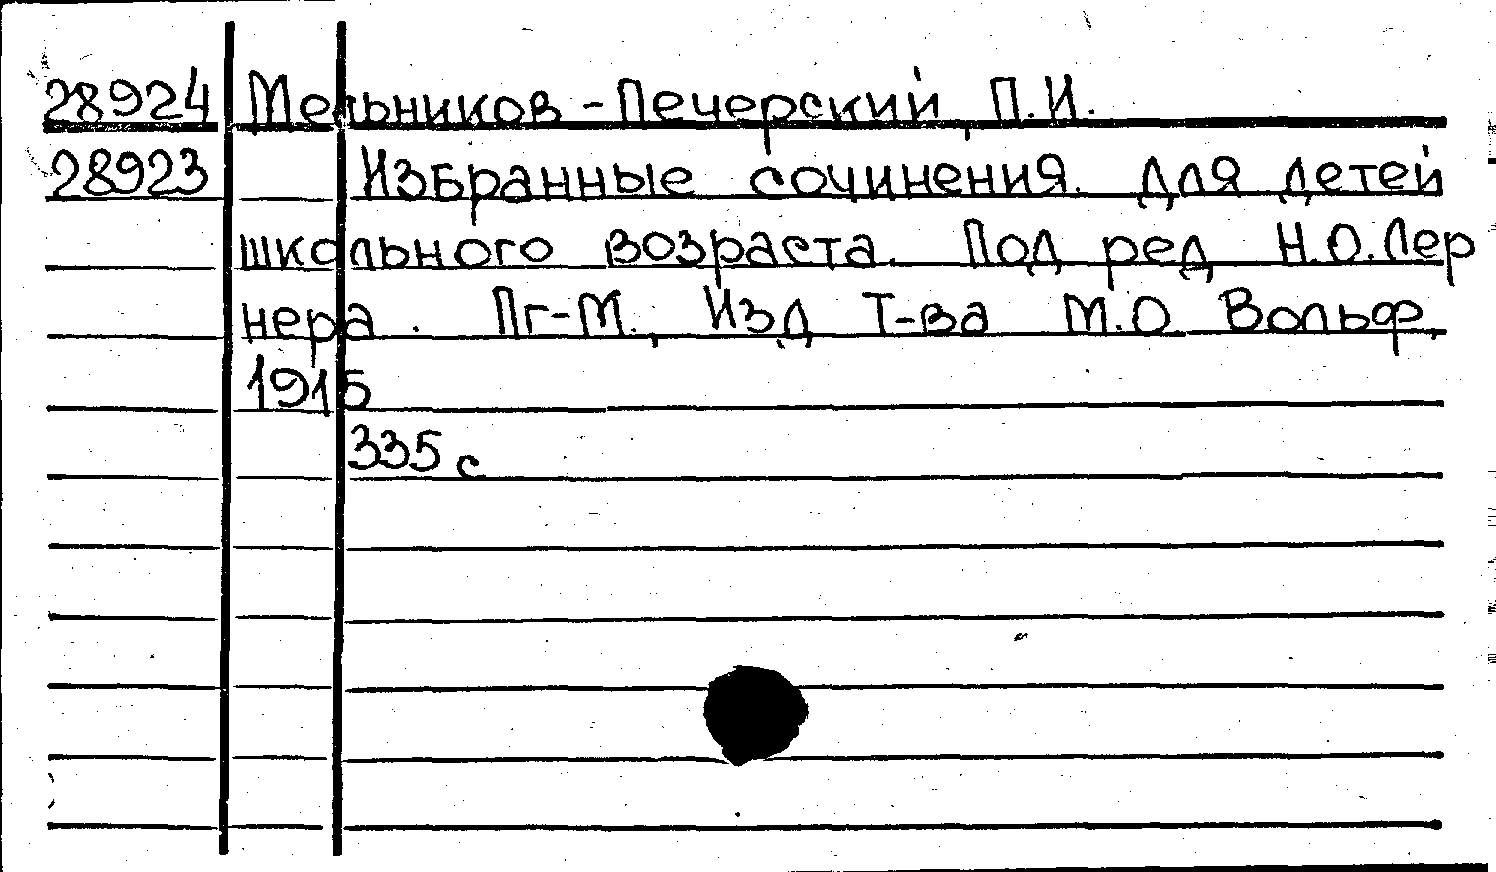 28924 Мельников-Печерский, П.И.
28923 Избранные сочинения. Для детей
школьного возраста. Под ред Н.О.Лер
нера. Пг-М., Изд. Т-ва М.О Вольф,
1915
335 с